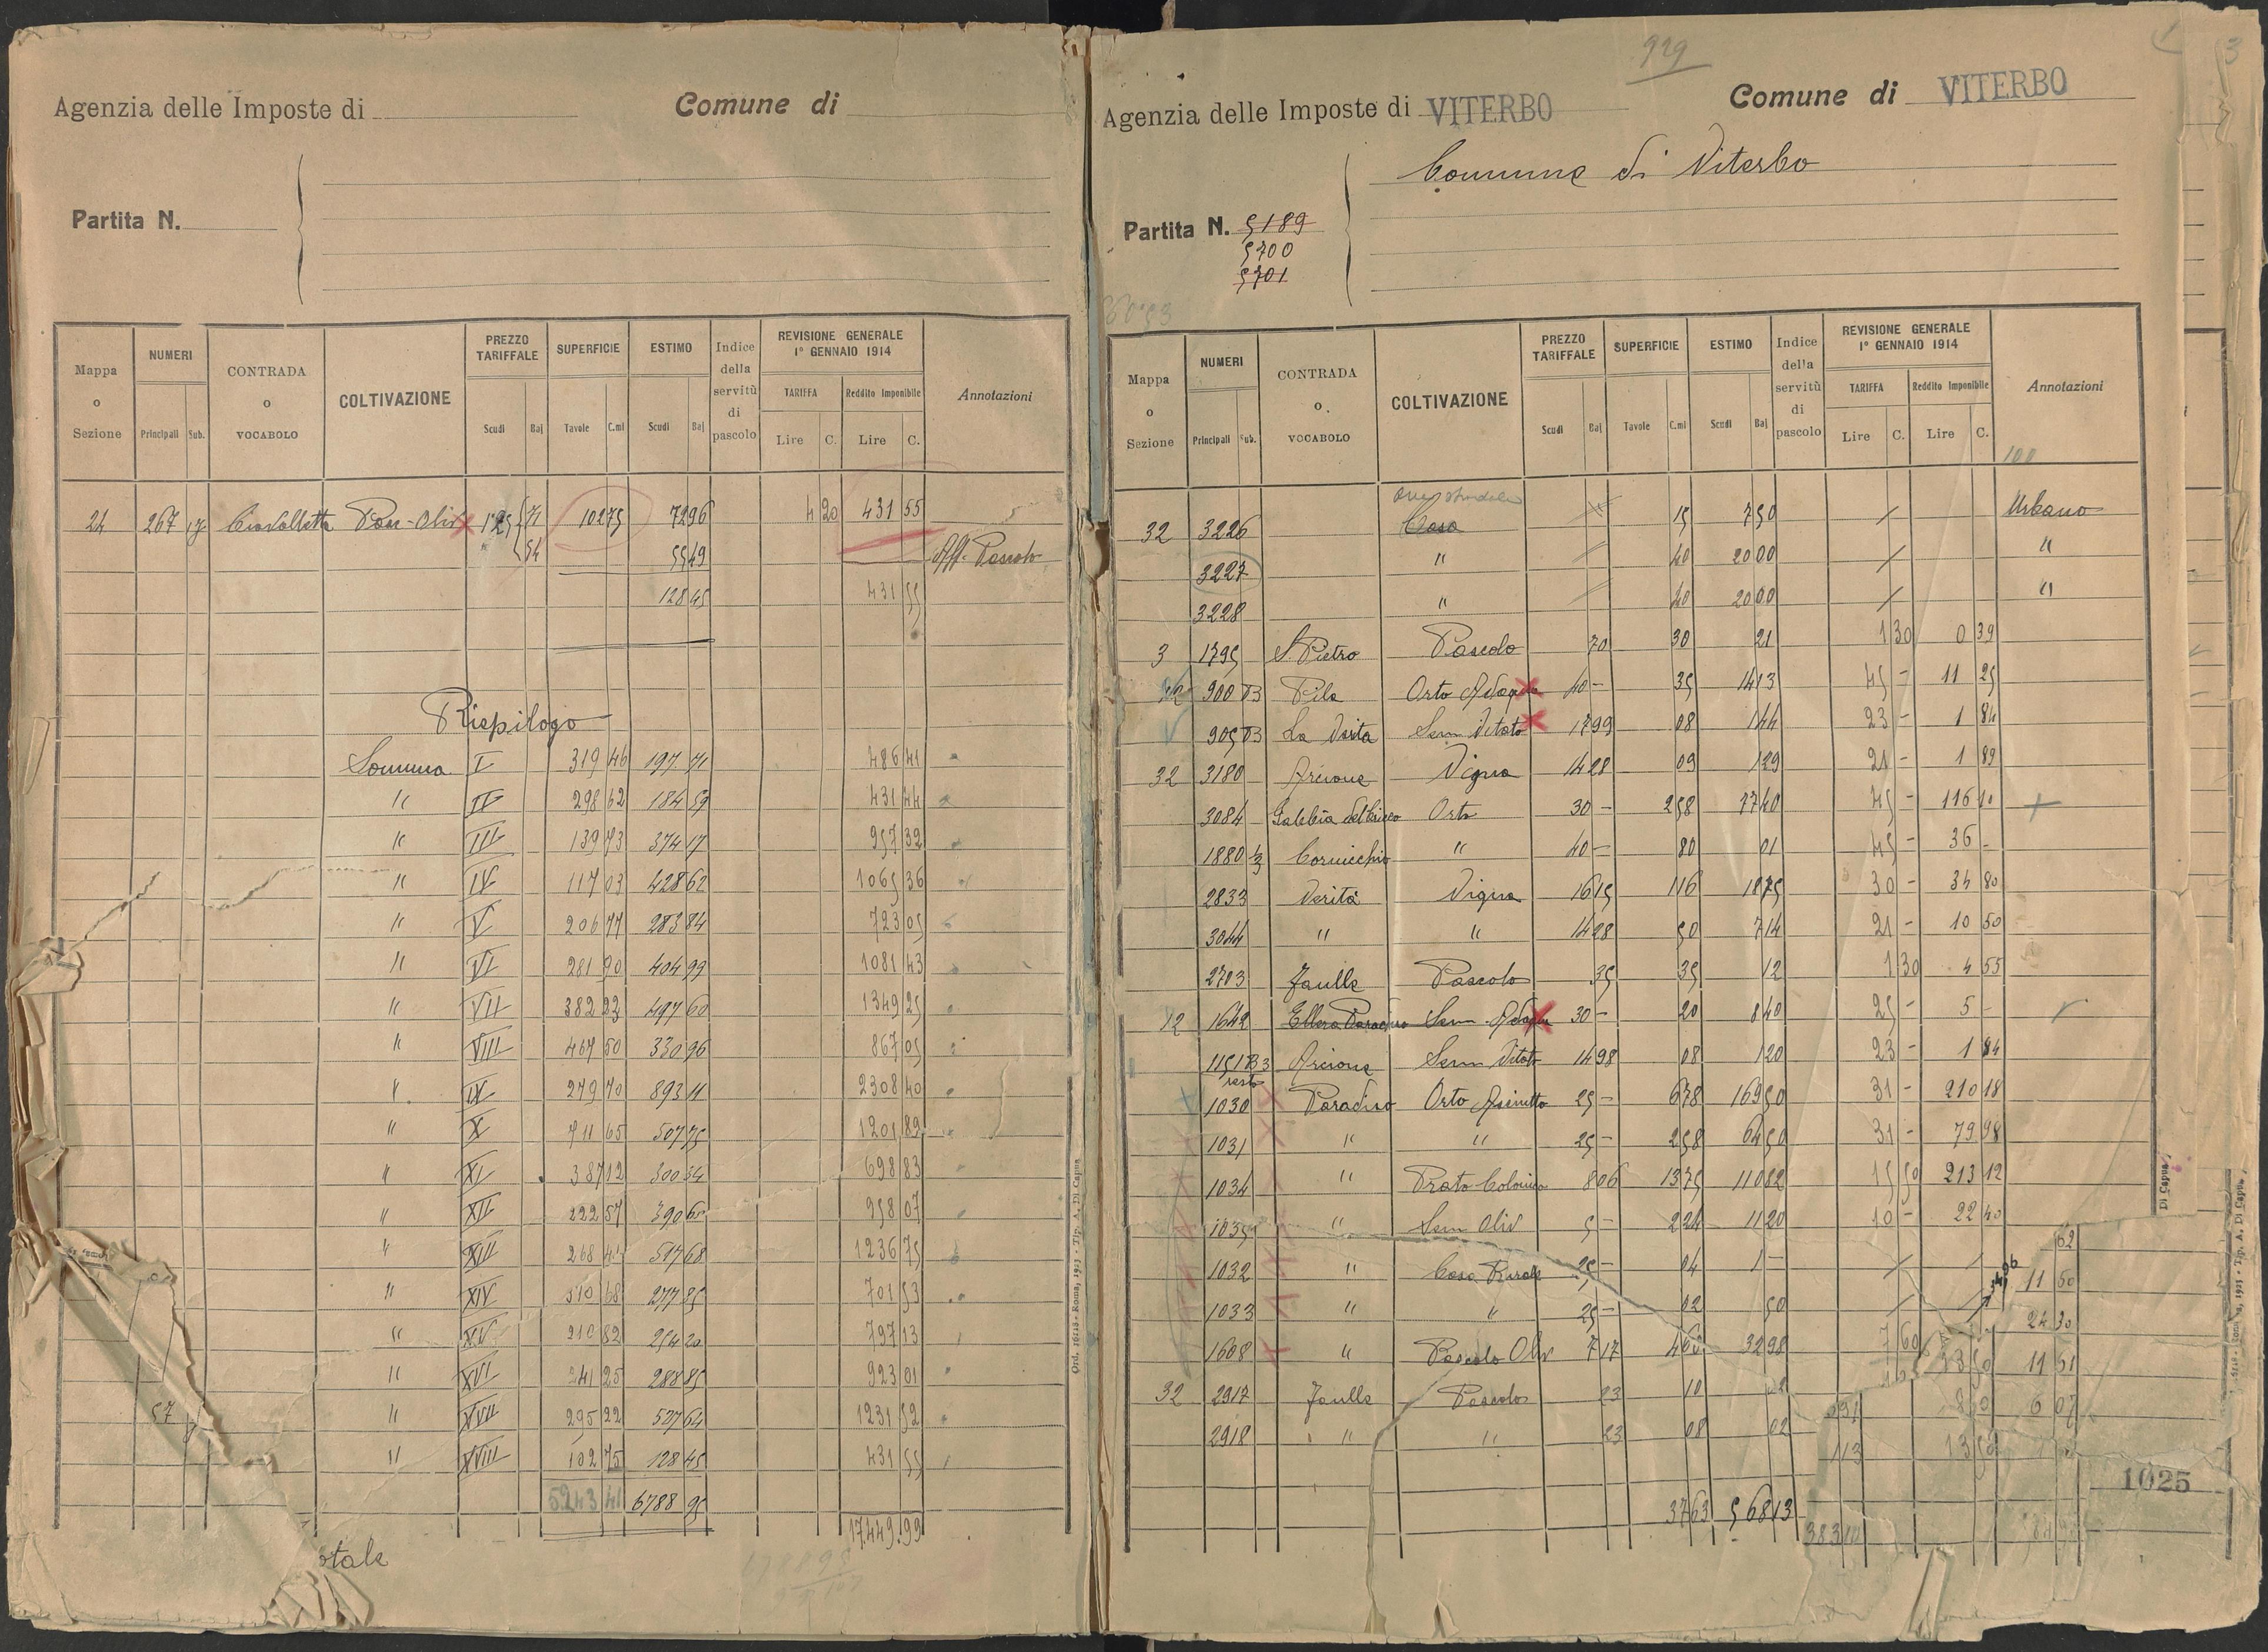 Agenzia delle Imposte di
Comune di
Partita N.
Mappa o Sezione | NUMERI Principali Sub. | CONTRADA o VOCABOLO | COLTIVAZIONE | PREZZO TARIFFALE Scudi Baj | SUPERFICIE Tavole C.mi | ESTIMO Scudi Baj | Indice della servitù di pascolo | REVISIONE GENERALE 1º GENNAIO 1914 TARIFFA Lire C. Reddito Imponibile Lire C. | Annotazioni
24 267 Pasc-Oliv 1 25 71 102 75 72 96 4 20 431 55
54 55 49 Aff. Pascolo
128 45 431 55
Riepilogo
Somma I 319 46 197 71 486 41
" II 298 62 184 59 431 44
" III 139 73 374 17 957 32
" IV 117 03 428 62 1065 36
" V 206 77 283 84 723 05
" VI 281 90 404 99 1081 43
" VII 382 23 497 60 1349 25
" VIII 467 50 330 96 867 05
" IX 279 70 893 11 2308 40
" X 711 65 507 75 1201 89
" XI 387 12 300 34 698 83
" XII 222 57 390 65 958 07
" XIII 268 517 68 1236 75
" XIV 310 68 277 85 701 53
" XV 210 82 254 20 797 13
" XVI 241 25 288 85 923 01
57 " XVII 295 22 527 64 1231 52
" XVIII 102 75 128 45 431 55
5243 41 6788 95
17.449.99
otale
Ord. 16118 - Roma, 1913 - Tip. A. Di Capua
929
3
Agenzia delle Imposte di VITERBO
Comune di VITERBO
Comune di Viterbo
Partita N. 5189
5700
5701
Mappa o Sezione | NUMERI Principali Sub. | CONTRADA o VOCABOLO | COLTIVAZIONE | PREZZO TARIFFALE Scudi Baj | SUPERFICIE Tavole C.mi | ESTIMO Scudi Baj | Indice della servitù di pascolo | REVISIONE GENERALE 1º GENNAIO 1914 TARIFFA Lire C. Reddito Imponibile Lire C. | Annotazioni
100
32 3226 Casa 15 7 50 Urbano
3227 " 40 20 00 "
3228 " 40 20 00 "
3 1795 S. Pietro Pascolo 70 30 21 1 30 0 39
12 900 Pila Orto Adacq 40 - 35 14 13 45 - 11 25
905 La Verita Sem Vitato 17 99 08 1 44 23 - 1 84
32 3180 Arcione Vigna 14 28 09 1 29 21 - 1 89
3084 Orto 30 - 2 58 77 40 45 - 116 10
1880 1/3 Cornicchio " 40 - 80 01 45 - 36 -
2833 Verità Vigna 16 15 1 16 18 75 30 - 34 80
3044 " " 14 28 50 7 14 21 - 10 50
2703 Faulle Pascolo 35 35 12 1 30 4 55
12 1642 Ellera Paradiso Sem Adacq 30 - 20 8 40 25 - 5 -
1151 B3 Arcione Sem Vitato 14 98 08 1 20 23 - 1 84
resto
1030 Paradiso Orto Asciutto 25 - 6 78 169 50 31 - 210 18
1031 " " 25 - 2 58 64 50 31 - 79 98
1034 " Prato Colonico 8 06 13 75 110 82 15 50 213 12
1035 " Sem Oliv 5 - 2 24 11 20 10 - 22 40
1032 " Casa Rurale 25 - 04 1 -
1033 " " 25 - 02 50
1608 " Pascolo Oliv 7 17 4 60 32 98 7 60
32 2917 Faulle Pascolo 23 10 2
2918 " " 23 08 02
37 63 568 13
62
11 50
24 30
11 51
6 07
1025
Di Capua